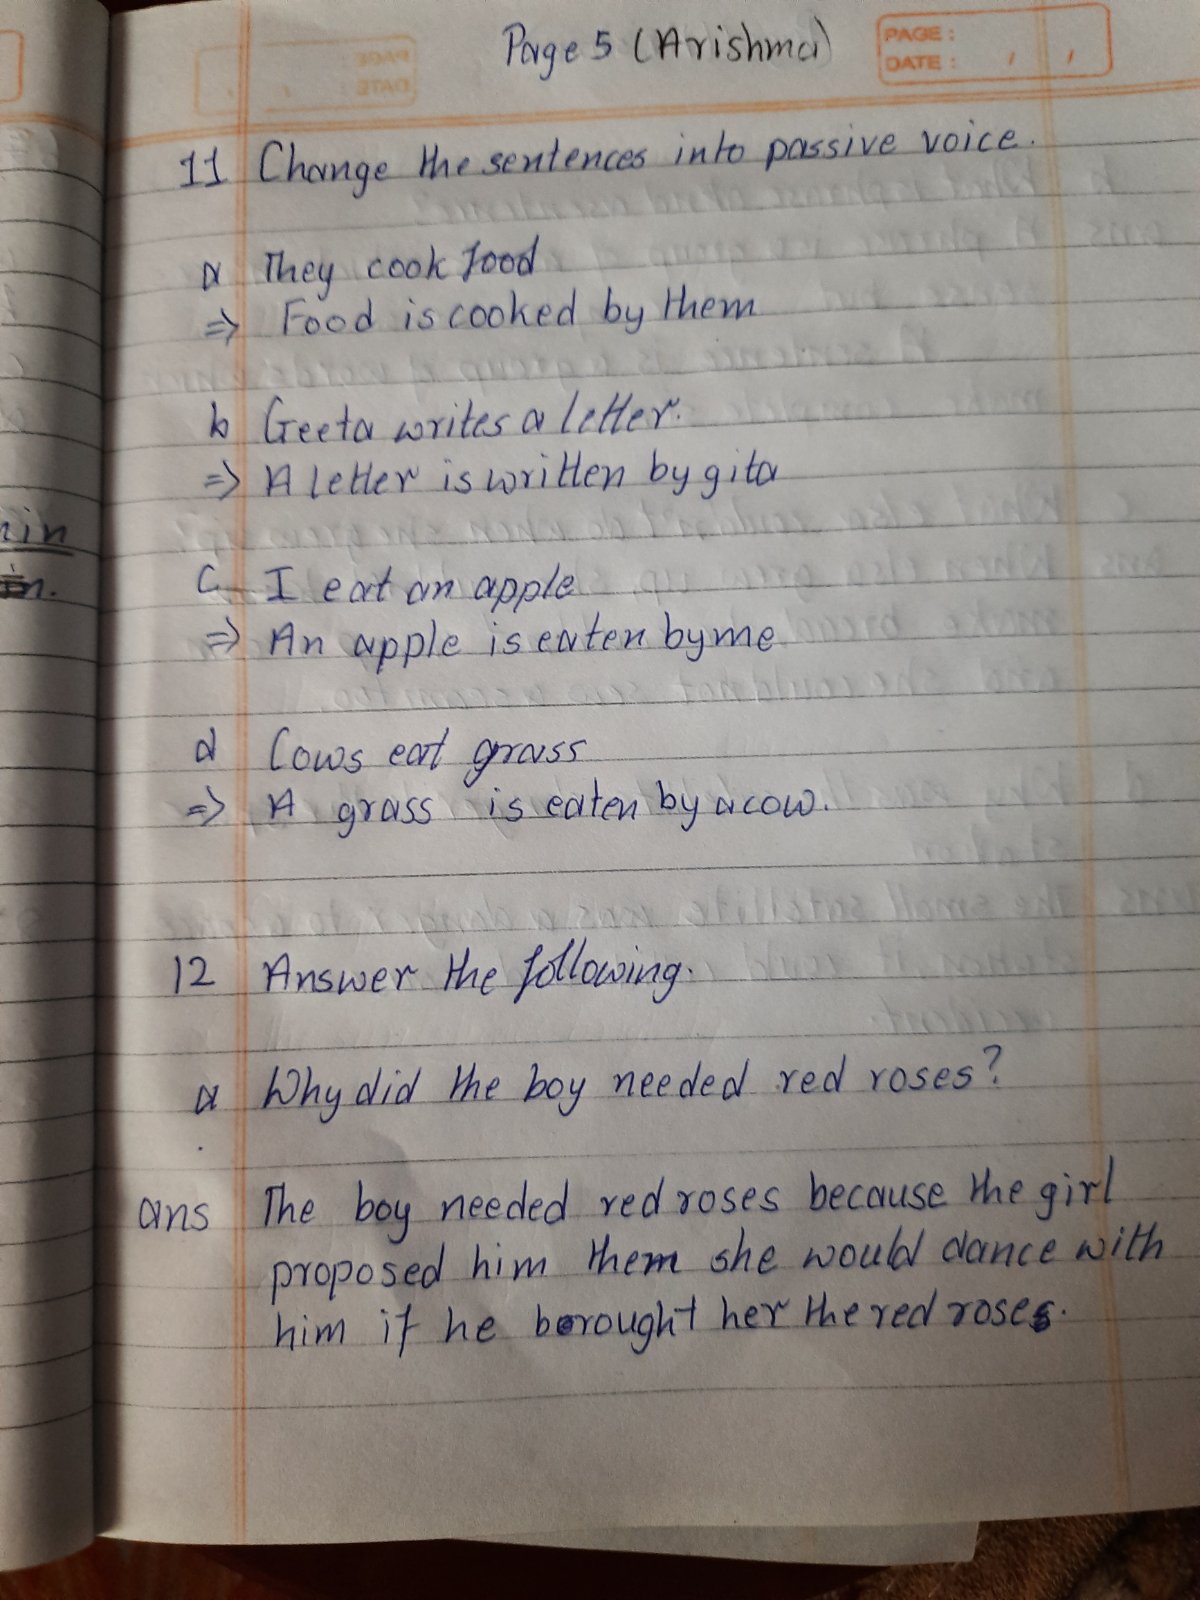 Page 5 (Arishma)
PAGE :
DATE : / /
11 Change the sentences into passive voice.
a They cook food
⇒ Food is cooked by them
b Geeta writes a letter.
⇒ A letter is written by gita
c I eat an apple
⇒ An apple is eaten by me
d Cows eat grass
⇒ A grass is eaten by a cow.
12 Answer the following.
a Why did the boy needed red roses?
ans The boy needed red roses because the girl
proposed him them she would dance with
him if he borought her the red roses.